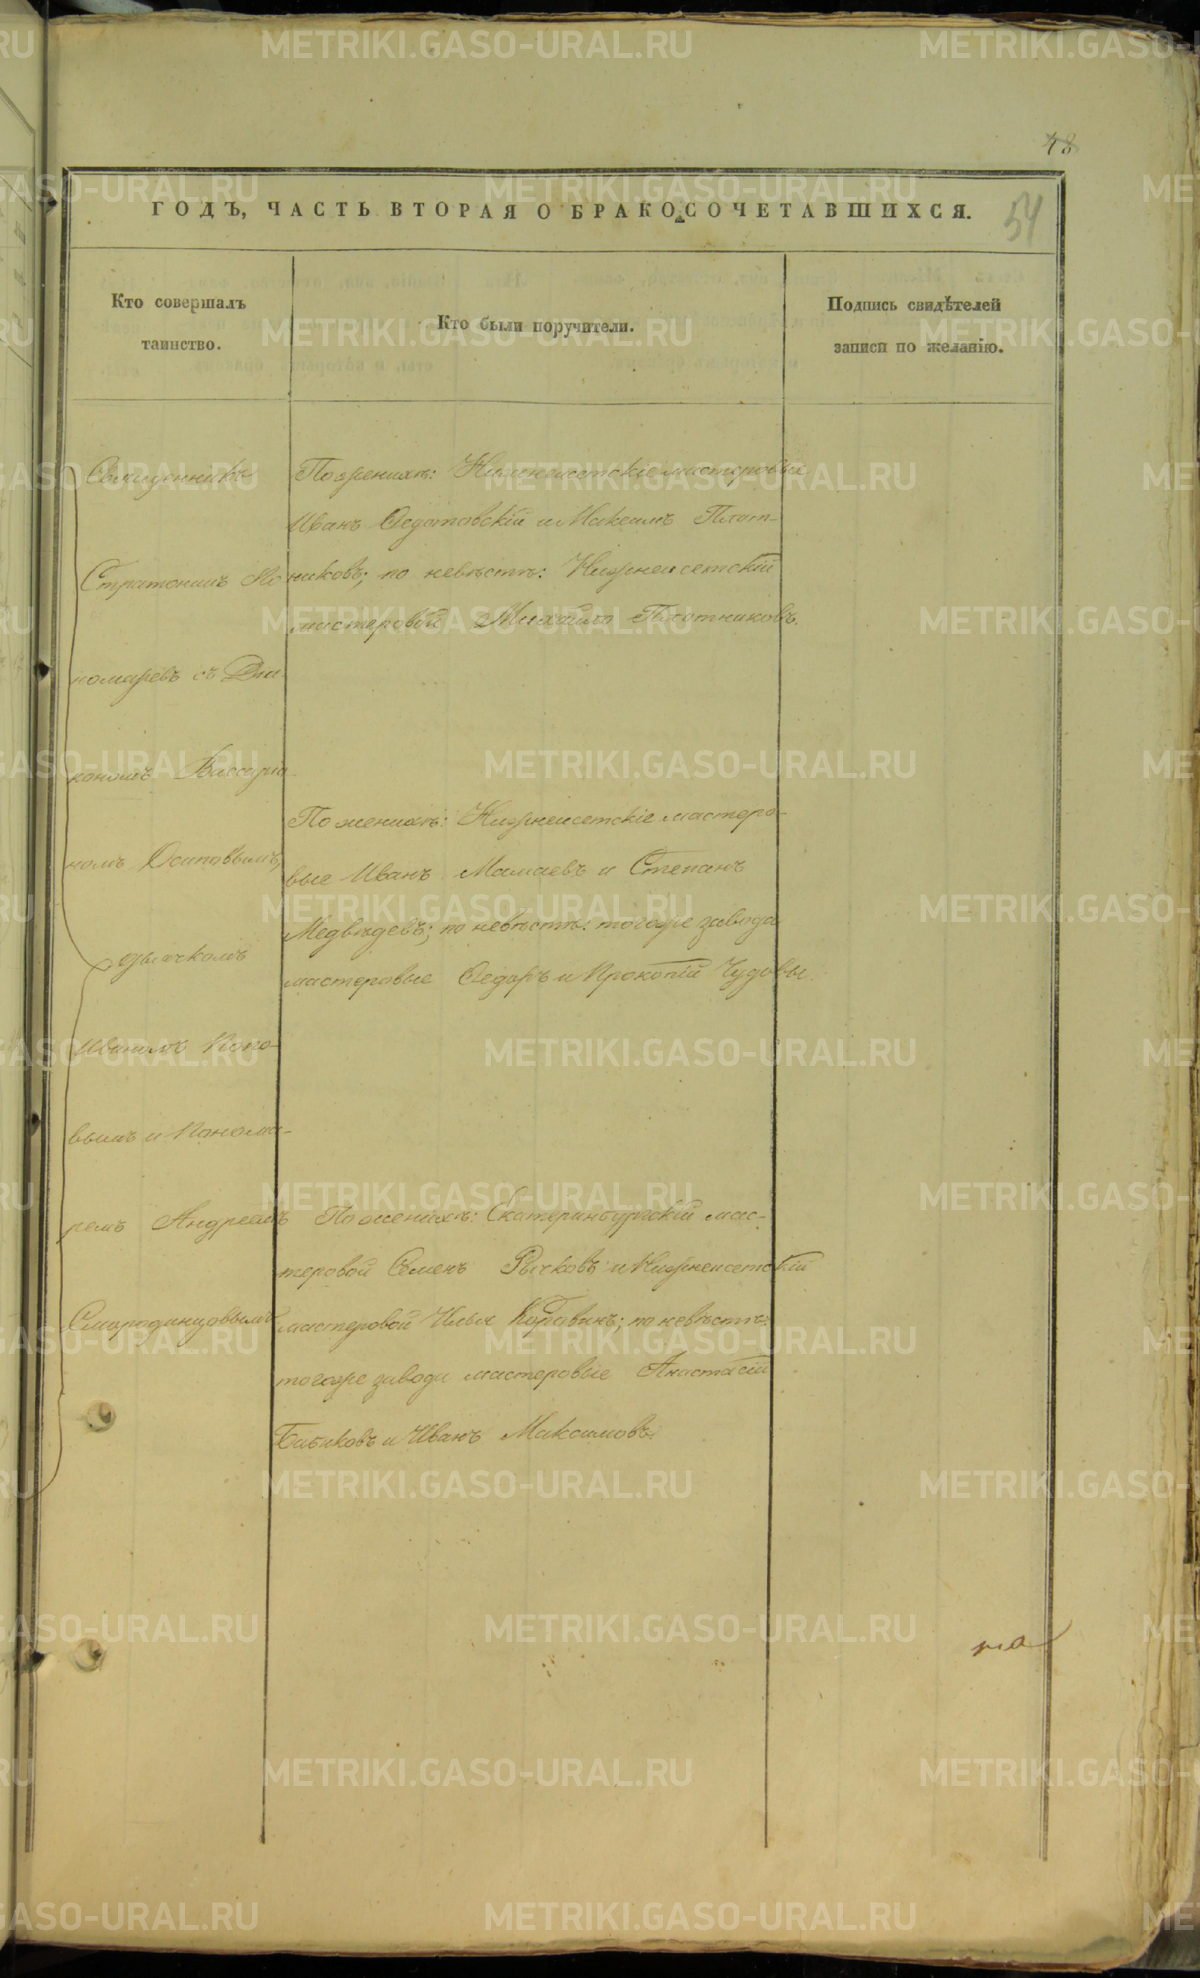 48
54
ГОДЪ, ЧАСТЬ ВТОРАЯ О БРАКОСОЧЕТАВШИХСЯ.
Кто совершалъ
таинство.
Кто были поручители.
Подпись свидѣтелей
записи по желанію.
Священникъ
Стратоникъ По
номаревъ съ Дiа
кономъ Виссарiо
номъ Осиповымъ,
дьячкомъ
Иваномъ Попо-
вымъ и Понома-
ремъ Андреемъ
Смородинцовымъ
По женихѣ: Нижнеисетскіе мастеровые
Иванъ Федотовскій и Максимъ Плот-
никовъ; по невѣстѣ: Нижнеисетскій
мастеровой Михайло Плотниковъ.
По женихѣ: Нижнеисетскіе мастеро-
вые Иванъ Мамаевъ и Степанъ
Медвѣдевъ; по невѣстѣ: тогоже завода
мастеровые Федоръ и Прокопій Чудовы.
По женихѣ: Екатеринбургскій мас-
теровой Семенъ Рычковъ и Нижнеисетскій
мастеровой Илья Коровинъ; по невѣстѣ:
тогоже завода мастеровые Анастасій
Бабиковъ и Иванъ Максимовъ.
METRIKI.GASO-URAL.RU